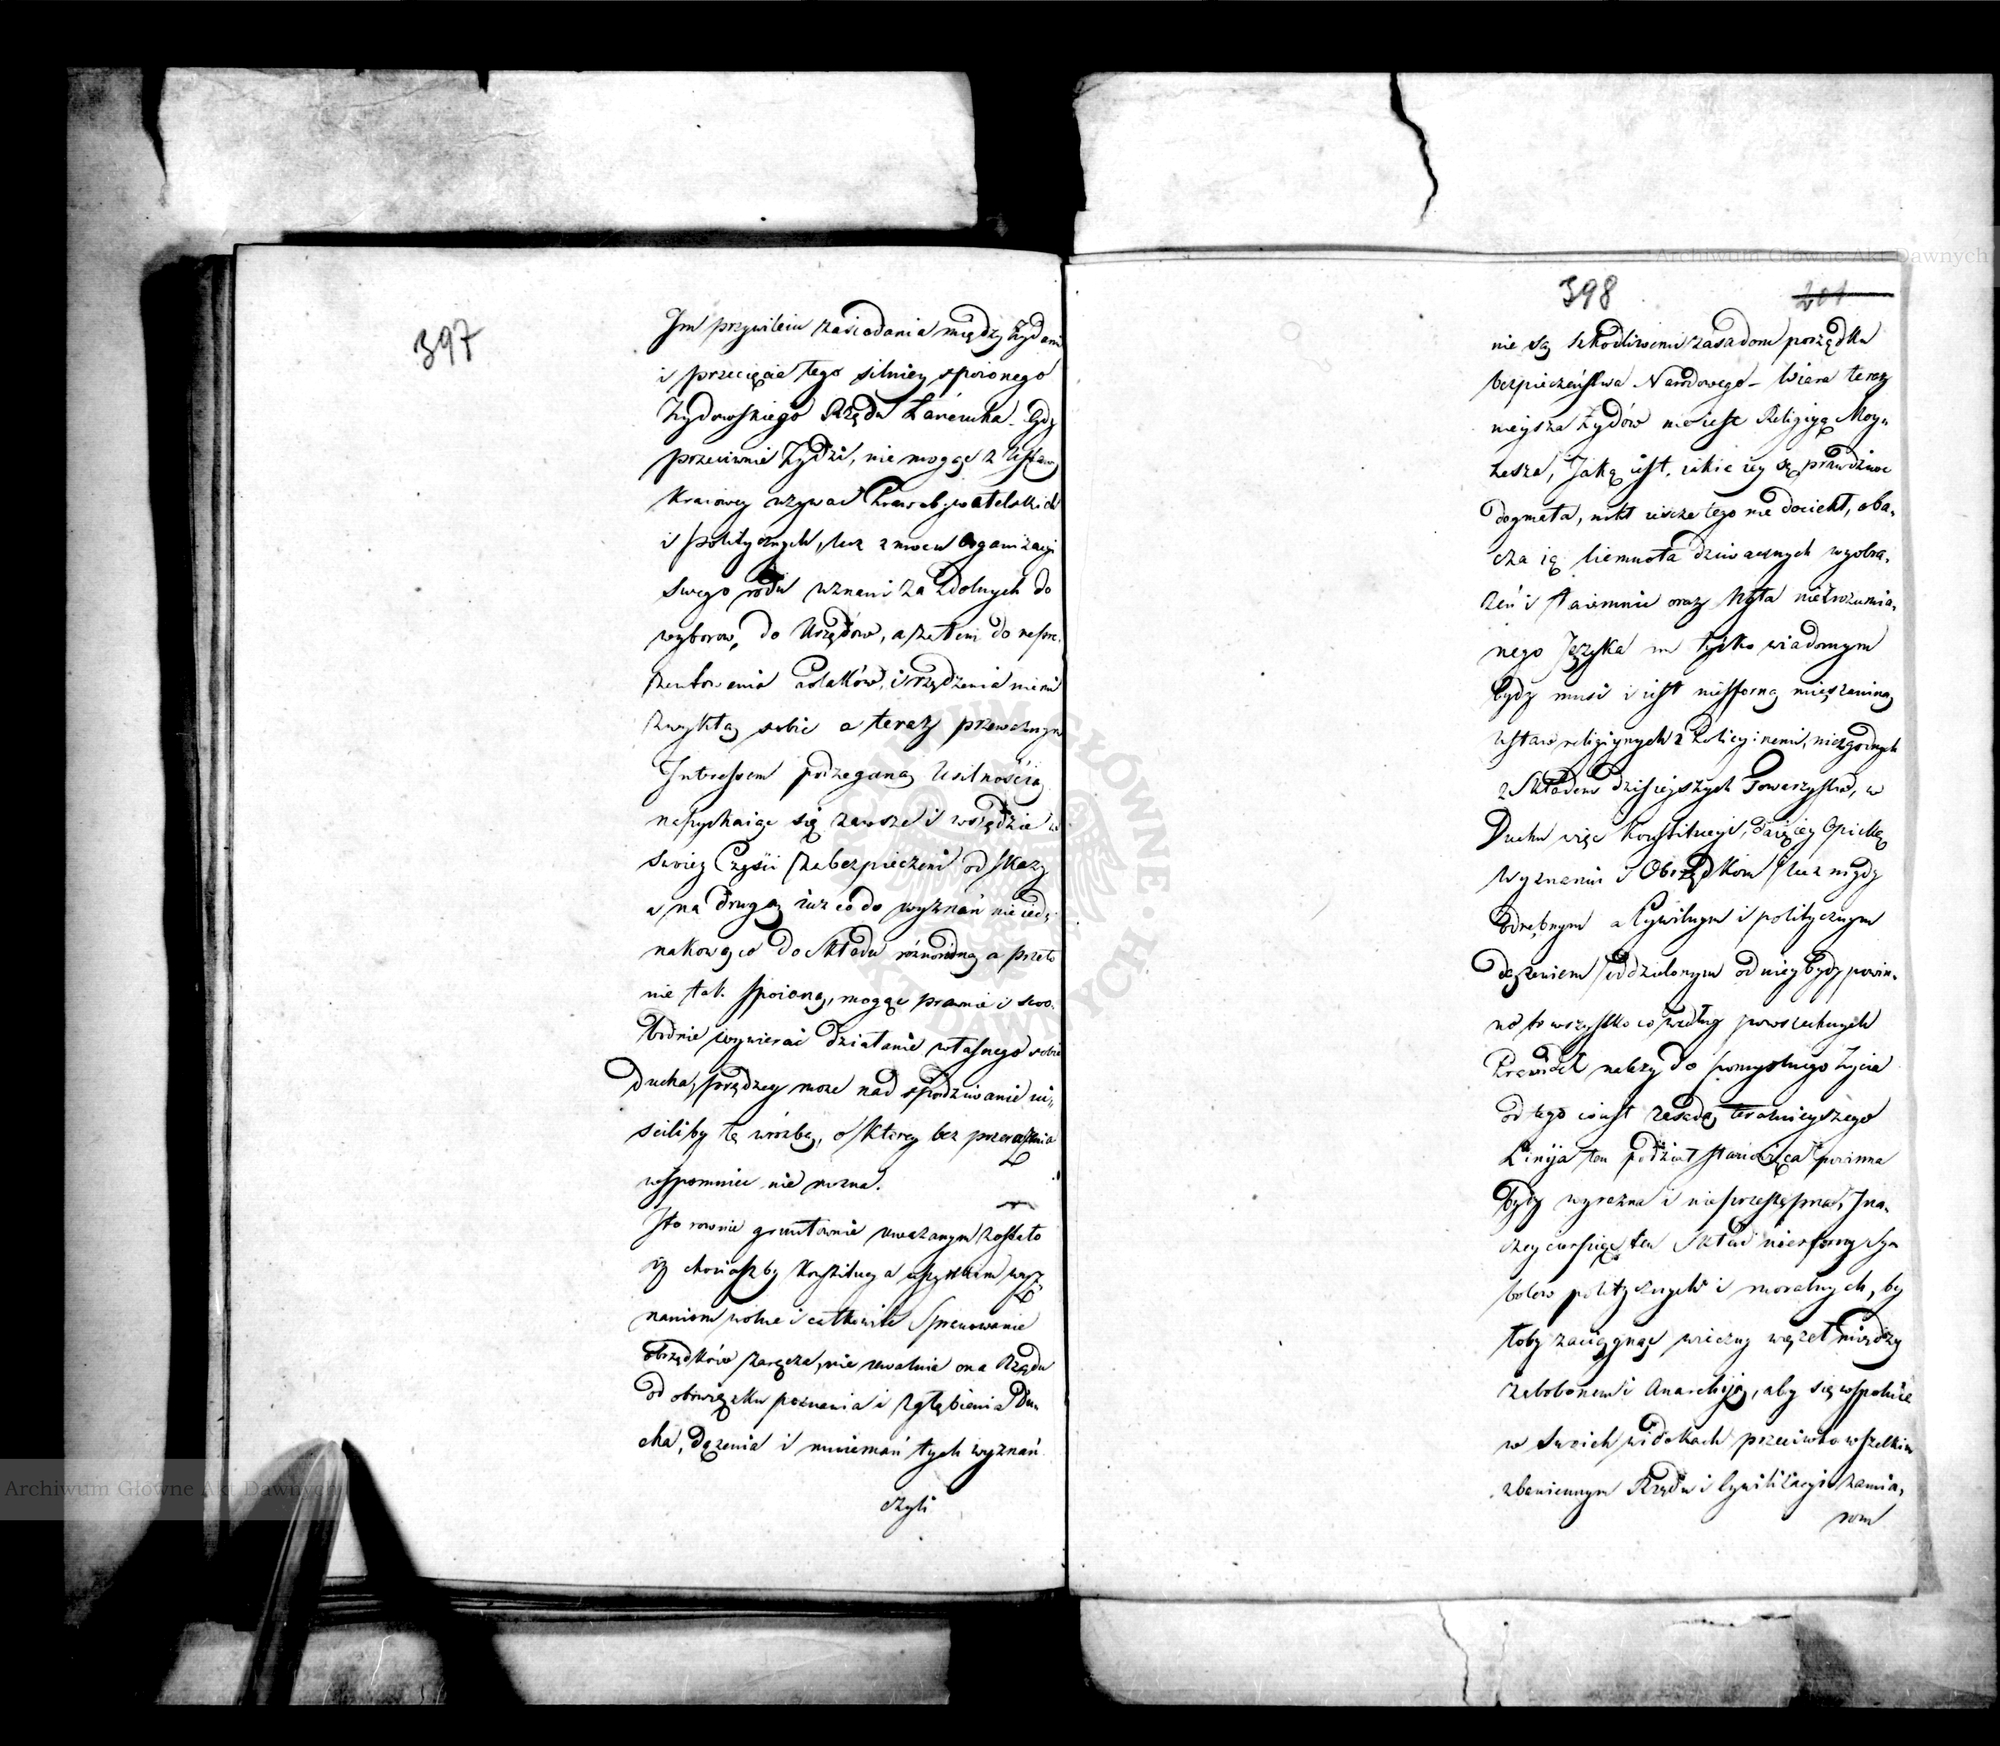 397
Im przywileiu zasiadania między Żydami
i przecięcia tego silniey spoionego
Żydowskiego Rzędu Łańcucha. Gdy
przeciwnie Żydzi, nie mogąc z Ustawy
Kraiowey używać Praw obywatelskich
i politycznych, lecz z mocy Organizacyi
swego rodu uznani za zdolnych do
wyborow, do Urzędów, a zatem do repre-
zentowania Polaków, i rządzenia niemi
zwykłą sobie a teraz przeważnym
Interessem podżeganą Usilnością
napychaiąc się zawsze i wszędzie w
swoiey Części zabezpieczeni od skazy
a na drugą iuż co do wyznań nie ied-
nakową co do składu różnorodną a przeto
nie tak spoioną, mogąc prawnie i swo-
bodnie wywierać działanie własnego sobie
Ducha, prędzey może nad spodziwanie zi-
ściliby tę wróżbę, o którey bez przerażenia
wspomnieć nie można.
Jto rownie gruntownie uważanym zostało
iż chociażby Konstitucya wszystkim wyz-
naniom wolne i całkowite Sprawowanie
obrządków zaręcza, nie uwalnia ona Rządu
od obowiązku poznania i zgłębienia Du-
cha, dążenia i mniemań tych wyznań
czyli
398
201
nie są szkodliwemi zasadom porządku
bezpieczeństwa Narodowego – Wiara teraz
nieysza Żydów nie iest Religiyą Moy-
zesza, Jaką iest, iakie iey są prawdziwe
dogmata, nikt ieszcze tego nie dociekł, oba-
cza ią ciemnota dziwacznych wyobra-
żeń i taiemnic oraz szyta niezrozumia-
nego Języka im tylko wiadomym
bydź musi i iest niesforną mięszaniną
Ustaw religiynych z Policyinemi, niezgodnych
z Składem dzisieyszych Towarzystw, w
Duchu więc Konstitucyi, daiącey Opiekę
Wyznaniu i Obrządkom lecz nigdy
odrębnym a Cywilnym i politycznym
dążeniem oddzielonym od niey bydź powin-
no to wszystko co według powszechnych
Prawideł należy do pomyślnego życia
od tego co iest zasadą teraźnieyszego
Linija ten podział stanowiąca powinna
bydź wyraźna i nieprzestępna, Jna-
czey cierpiąc ten Skład niesforny Sym
bolow politycznych i moralnych, by
łoby zaciągnąć wieczny węzeł między
zabobonem i Anarchiją, aby się wspolnie
w swoich widokach przeciwko wszelkim
zbawiennym Rządu i Cywilizacyi zamia-
rom
Archiwum Główne Akt Dawnych
Archiwum Główne Akt Dawnych
ARCHIWUM GŁÓWNE AKT DAWNYCH